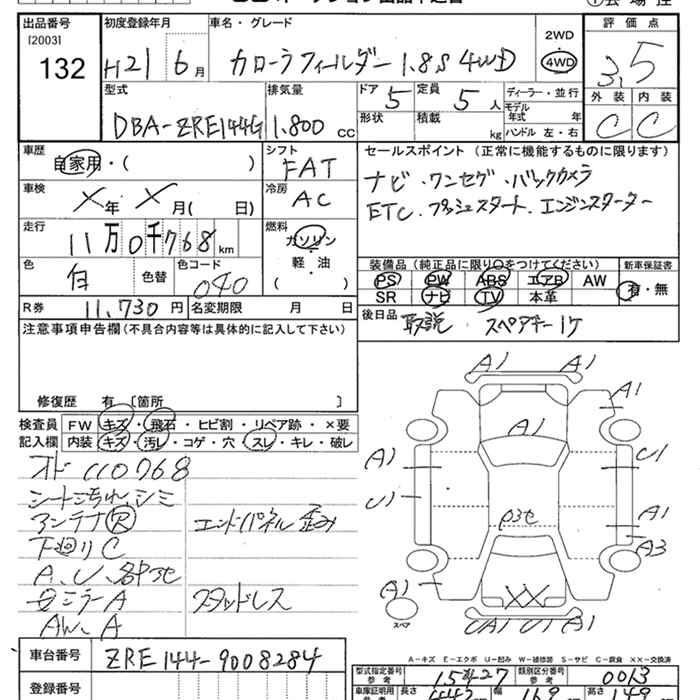 出品番号 初度登録年月 車名・グレード 2WD 評価点
[2003]
132 H21 6月 カローラフィールダー 1.8S 4WD 4WD 3.5
型式 排気量 ドア 定員 ディーラー・並行 外装 内装
5 5人 モデル年式 年
形状 積載 kg ハンドル 左・右 C C
DBA-ZRE144G 1.800 CC
車歴 シフト セールスポイント (正常に機能するものに限ります)
自家用・( ) FAT ナビ・ワンセグ・バックカメラ
車検 冷房 ETC・プッシュスタート・エンジンスターター
X年 X月( 日) AC
走行 燃料
11万0千768km ガソリン
軽・油
色 色替 色コード ( ) 装備品 (純正品に限り○をつけてください) 新車保証書
白 040 PS PW ABS エアB AW 有・無
SR ナビ TV 本革
R券 11,730円 名変期限 月 日 後日品 取説 スペアキー1ケ
注意事項申告欄 (不具合内容等は具体的に記入して下さい)
修復歴 有 〔箇所 〕
検査員 FW キズ・飛石・ヒビ割・リペア跡・×要
記入欄 内装 キズ・汚レ・コゲ・穴・スレ・キレ・破レ
オド 110768
シートこちれ、シミ
アンテナ R エンドパネル歪み
下廻りC
A、U、各部地
Bミラー A スタッドレス
AW、A
A1 A1
A1
A1
A1 U1
U1 A1
P3セ
A3
A1
スペア UA1 U1 A1
A-キズ E-エクボ U-凹み W-補修跡 S-サビ C-腐食 XX-交換済
車台番号 ZRE144-9008284
型式指定番号 参考 15827 類別区分番号 参考 0013
登録番号
車庫証明用 参考 長さ 442 幅 169 高さ 149